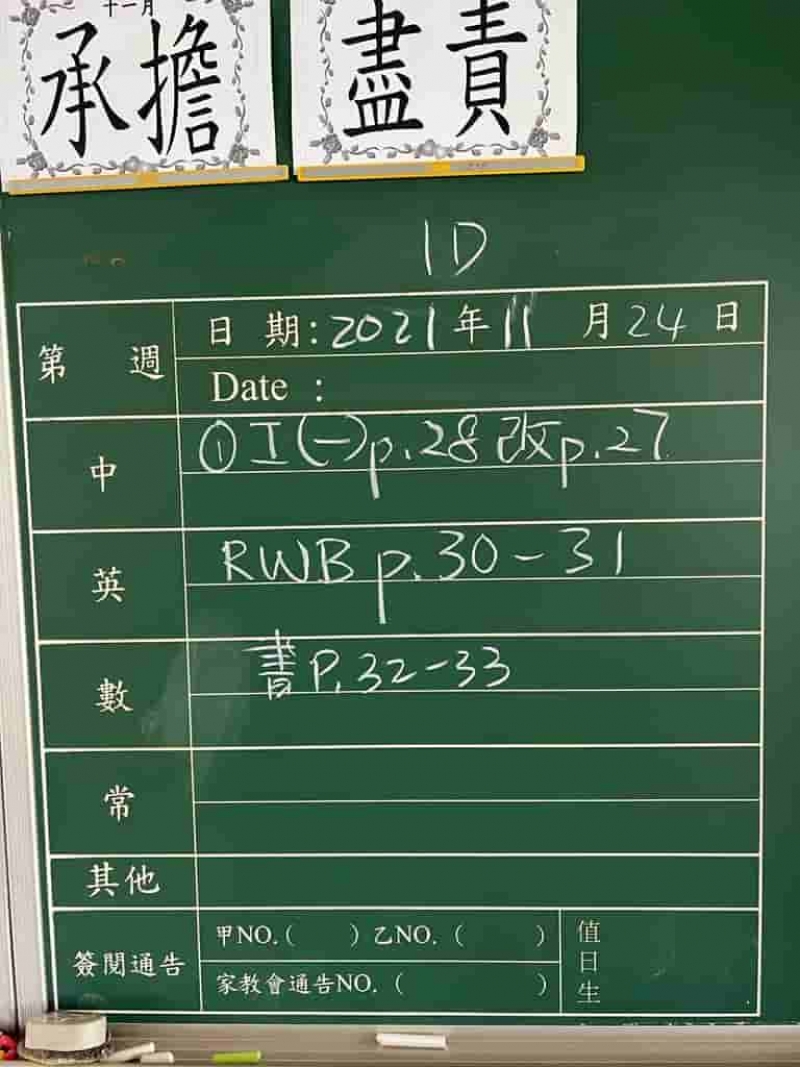 十一月
承擔
盡責
1D
第 週
日 期: 2021 年 11 月 24 日
Date :
中
① 工(一)p.28 改p.27
英
RWB p.30-31
數
書P.32-33
常
其他
簽閱通告
甲NO.( ) 乙NO. ( )
家教會通告NO. ( )
值日生